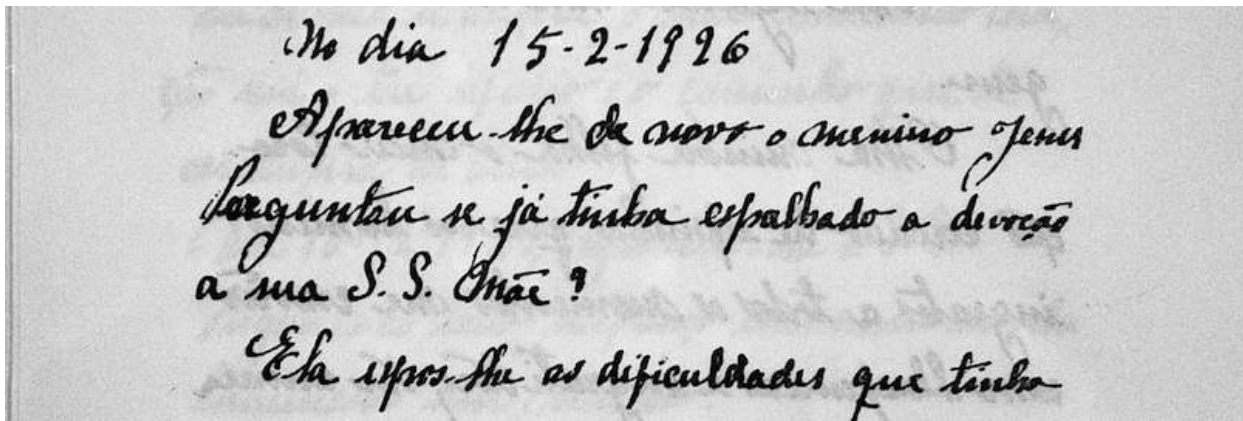 No dia 15-2-1926
Apareceu-lhe de novo o menino Jesus
Perguntou se já tinha espalhado a devoção
a sua S. S. Mãe?
Ela espos-lhe as dificuldades que tinha